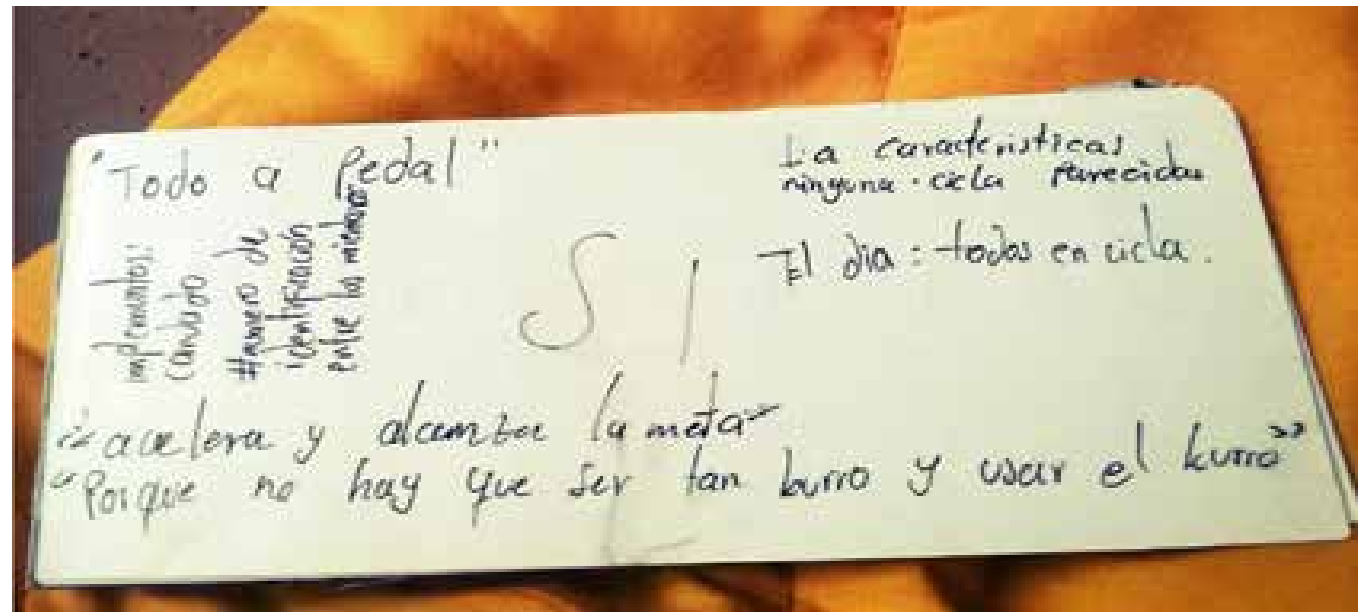 "Todo a Pedal"
implementos:
candado
#número de
identificación
entre los miembros
La caracteristicas
ninguna cicla parecida
El dia : todos en cicla.
SI
acelera y alcanza la meta
"Porque no hay que ser tan burro y usar el burro"